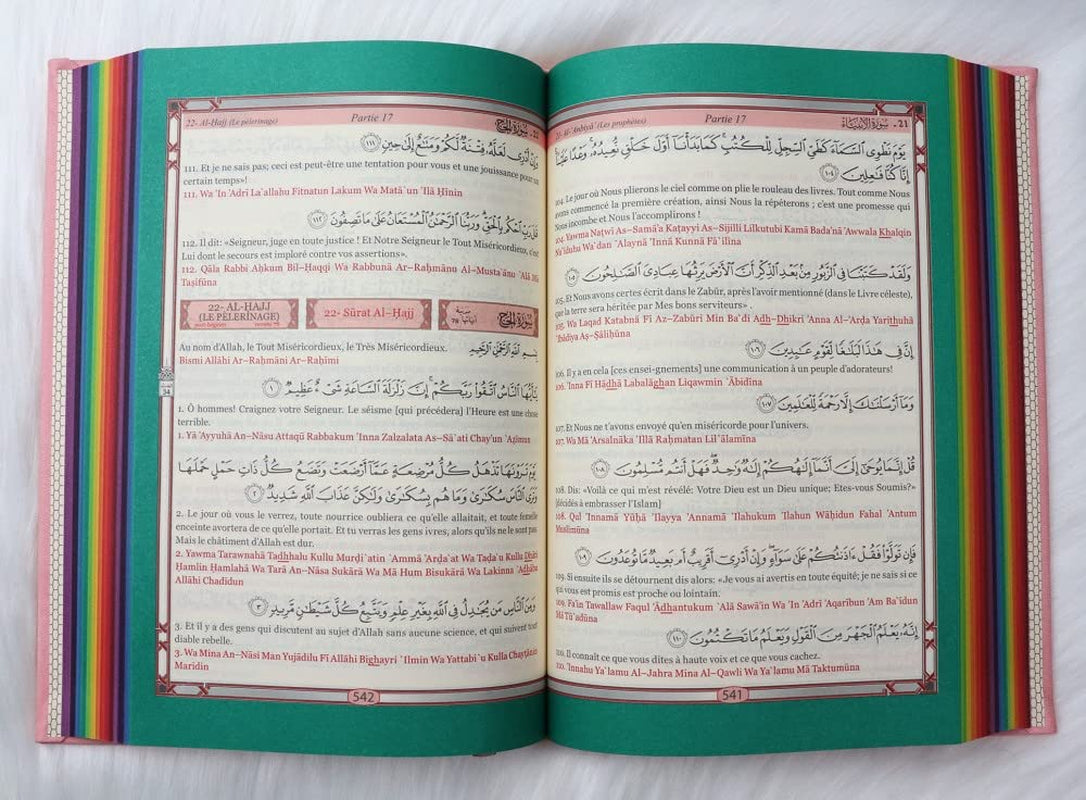 21- Al-'Anbiyā' (Les prophètes)
Partie 17
21- سورة الأنبياء
يَوْمَ نَطْوِي السَّمَاءَ كَطَيِّ السِّجِلِّ لِلْكُتُبِ كَمَا بَدَأْنَا أَوَّلَ خَلْقٍ نُعِيدُهُ وَعْدًا عَلَيْنَا
إِنَّا كُنَّا فَاعِلِينَ ١٠٤
104. Le jour où Nous plierons le ciel comme on plie le rouleau des livres. Tout comme Nous
avons commencé la première création, ainsi Nous la répéterons ; c'est une promesse qui
Nous incombe et Nous l'accomplirons !
104. Yawma Naţwī As-Samā'a Kaţayyi As-Sijilli Lilkutubi Kamā Bada'nā 'Awwala Khalqin
Nu`īduhu Wa`dan `Alaynā 'Innā Kunnā Fā`ilīna
وَلَقَدْ كَتَبْنَا فِي الزَّبُورِ مِنْ بَعْدِ الذِّكْرِ أَنَّ الْأَرْضَ يَرِثُهَا عِبَادِيَ الصَّالِحُونَ ١٠٥
105. Et Nous avons certes écrit dans le Zabūr, après l'avoir mentionné (dans le Livre céleste),
que la terre sera héritée par Mes bons serviteurs» .
105. Wa Laqad Katabnā Fī Az-Zabūri Min Ba`di Adh-Dhikri 'Anna Al-'Arđa Yarithuhā
`Ibādiya Aş-Şāliĥūna
إِنَّ فِي هَٰذَا لَبَلَاغًا لِقَوْمٍ عَابِدِينَ ١٠٦
106. Il y a en cela [ces ensei-gnements] une communication à un peuple d'adorateurs!
106. 'Inna Fī Hādhā Labalāghan Liqawmin `Ābidīna
وَمَا أَرْسَلْنَاكَ إِلَّا رَحْمَةً لِلْعَالَمِينَ ١٠٧
107. Et Nous ne t'avons envoyé qu'en miséricorde pour l'univers.
107. Wa Mā 'Arsalnāka 'Illā Raĥmatan Lil`ālamīna
قُلْ إِنَّمَا يُوحَىٰ إِلَيَّ أَنَّمَا إِلَٰهُكُمْ إِلَٰهٌ وَاحِدٌ فَهَلْ أَنْتُمْ مُسْلِمُونَ ١٠٨
108. Dis: «Voilà ce qui m'est révélé: Votre Dieu est un Dieu unique; Etes-vous Soumis?»
[décidés à embrasser l'Islam]
108. Qul 'Innamā Yūĥá 'Ilayya 'Annamā 'Ilahukum 'Ilahun Wāĥidun Fahal 'Antum
Muslimūna
فَإِنْ تَوَلَّوْا فَقُلْ آذَنْتُكُمْ عَلَىٰ سَوَاءٍ وَإِنْ أَدْرِي أَقَرِيبٌ أَمْ بَعِيدٌ مَا تُوعَدُونَ ١٠٩
109. Si ensuite ils se détournent dis alors: «Je vous ai avertis en toute équité; je ne sais si ce
qui vous est promis est proche ou lointain.
109. Fa'in Tawallaw Faqul 'Ādhantukum `Alá Sawā'in Wa 'In 'Adrī 'Aqarībun 'Am Ba`īdun
Mā Tū`adūna
إِنَّهُ يَعْلَمُ الْجَهْرَ مِنَ الْقَوْلِ وَيَعْلَمُ مَا تَكْتُمُونَ ١١٠
110. Il connaît ce que vous dites à haute voix et ce que vous cachez.
110. 'Innahu Ya`lamu Al-Jahra Mina Al-Qawli Wa Ya`lamu Mā Taktumūna
541
22- Al-Ĥajj (Le pèlerinage)
Partie 17
22- سورة الحج
وَإِنْ أَدْرِي لَعَلَّهُ فِتْنَةٌ لَكُمْ وَمَتَاعٌ إِلَىٰ حِينٍ ١١١
111. Et je ne sais pas; ceci est peut-être une tentation pour vous et une jouissance pour un
certain temps»!
111. Wa 'In 'Adrī La`allahu Fitnatun Lakum Wa Matā`un 'Ilá Ĥīnin
قَالَ رَبِّ احْكُمْ بِالْحَقِّ وَرَبُّنَا الرَّحْمَٰنُ الْمُسْتَعَانُ عَلَىٰ مَا تَصِفُونَ ١١٢
112. Il dit: «Seigneur, juge en toute justice ! Et Notre Seigneur le Tout Miséricordieux, c'est
Lui dont le secours est imploré contre vos assertions».
112. Qāla Rabbi Aĥkum Bil-Ĥaqqi Wa Rabbunā Ar-Raĥmānu Al-Musta`ānu `Alá Mā
Taşifūna
22- AL-ĤAJJ
(LE PÈLERINAGE)
22- Sūrat Al-Ĥajj
سورة الحج
Au nom d'Allah, le Tout Miséricordieux, le Très Miséricordieux.
بِسْمِ اللَّهِ الرَّحْمَٰنِ الرَّحِيمِ
Bismi Allāhi Ar-Raĥmāni Ar-Raĥīmi
يَا أَيُّهَا النَّاسُ اتَّقُوا رَبَّكُمْ إِنَّ زَلْزَلَةَ السَّاعَةِ شَيْءٌ عَظِيمٌ ١
1. Ô hommes! Craignez votre Seigneur. Le séisme [qui précédera] l'Heure est une chose
terrible.
1. Yā 'Ayyuhā An-Nāsu Attaqū Rabbakum 'Inna Zalzalata As-Sā`ati Chay'un `Ažīmun
يَوْمَ تَرَوْنَهَا تَذْهَلُ كُلُّ مُرْضِعَةٍ عَمَّا أَرْضَعَتْ وَتَضَعُ كُلُّ ذَاتِ حَمْلٍ حَمْلَهَا
وَتَرَى النَّاسَ سُكَارَىٰ وَمَا هُمْ بِسُكَارَىٰ وَلَٰكِنَّ عَذَابَ اللَّهِ شَدِيدٌ ٢
2. Le jour où vous le verrez, toute nourrice oubliera ce qu'elle allaitait, et toute femelle
enceinte avortera de ce qu'elle portait. Et tu verras les gens ivres, alors qu'ils ne le sont pas.
Mais le châtiment d'Allah est dur.
2. Yawma Tarawnahā Tadhhalu Kullu Murđi`atin `Ammā 'Arđa`at Wa Tađa`u Kullu Dhāti
Ĥamlin Ĥamlahā Wa Tará An-Nāsa Sukārá Wa Mā Hum Bisukārá Wa Lakinna `Adhāba
Allāhi Chadīdun
وَمِنَ النَّاسِ مَنْ يُجَادِلُ فِي اللَّهِ بِغَيْرِ عِلْمٍ وَيَتَّبِعُ كُلَّ شَيْطَانٍ مَرِيدٍ ٣
3. Et il y a des gens qui discutent au sujet d'Allah sans aucune science, et qui suivent tout
diable rebelle.
3. Wa Mina An-Nāsi Man Yujādilu Fī Allāhi Bighayri `Ilmin Wa Yattabi`u Kulla Chayţānin
Marīdin
34
542